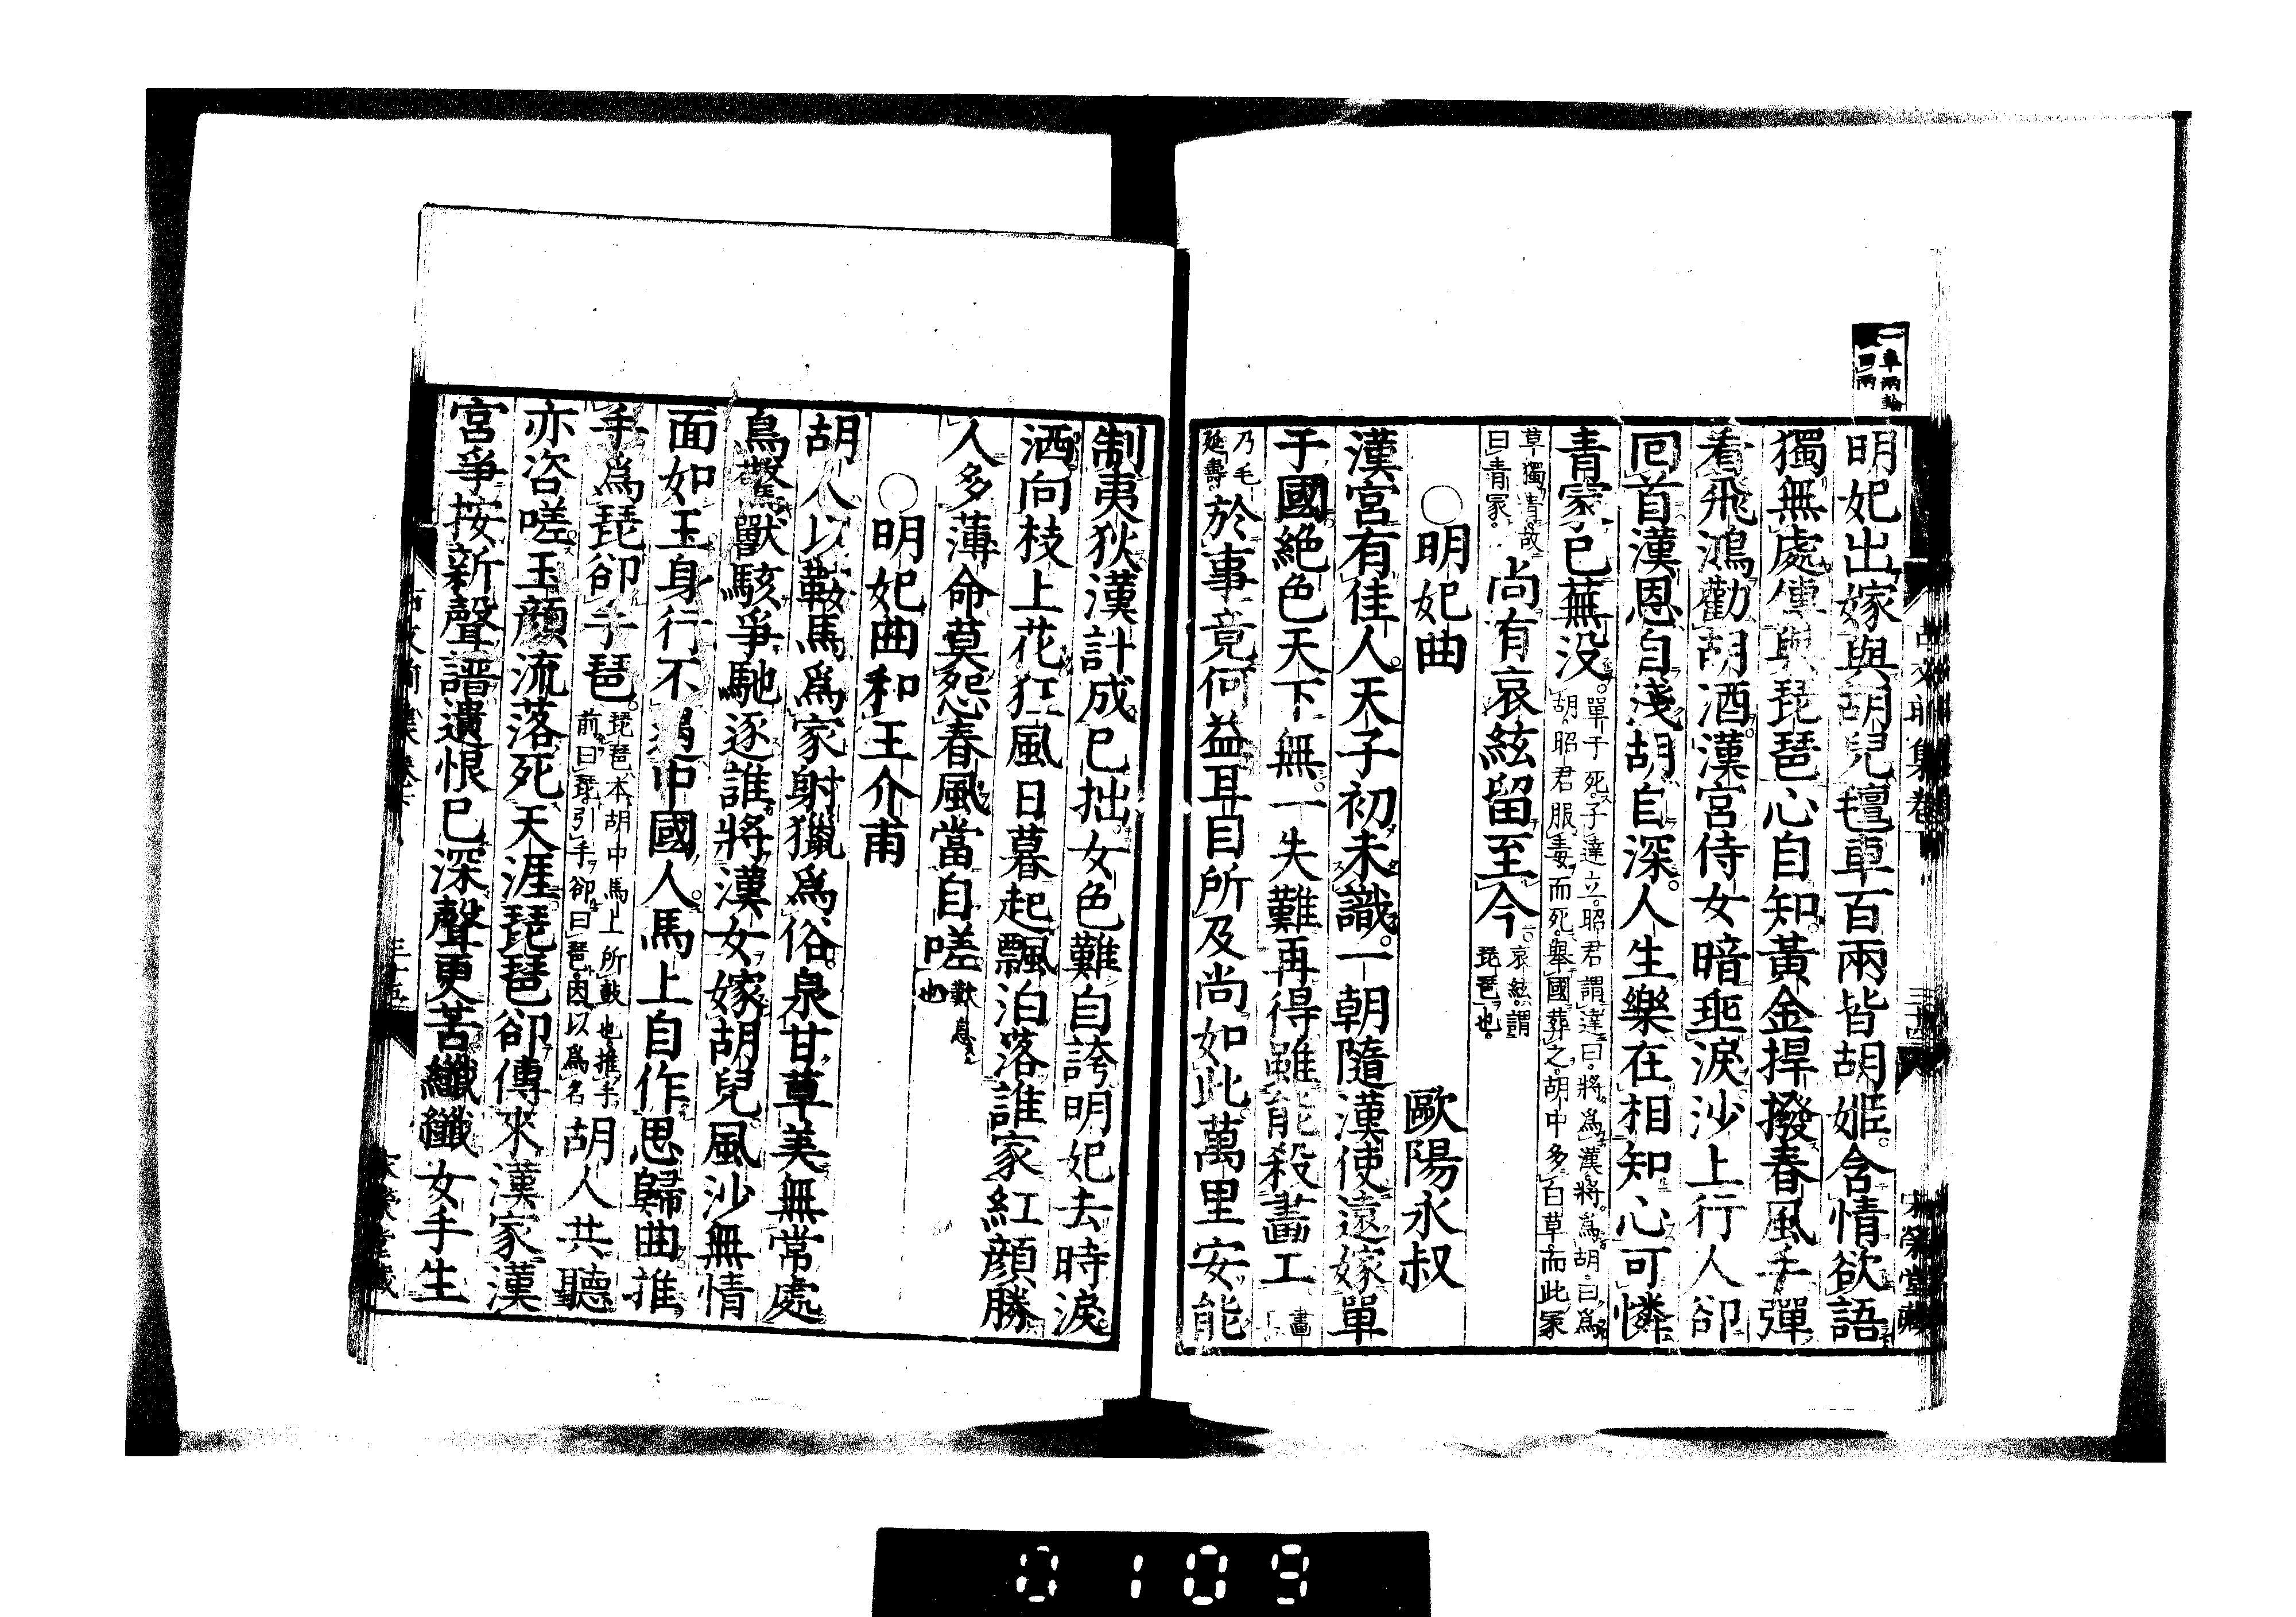 一車兩輪
曰兩
明妃出嫁與胡兒氊車百兩皆胡姬含情欲語
獨無處傳與琵琶心自知黃金捍撥春風手彈
看飛鴻勸胡酒漢宮侍女暗垂淚沙上行人卻
回首漢恩自淺胡自深人生樂在相知心可憐
青冢已蕪没單于死子達立昭君謂達曰將爲漢將爲胡曰爲胡昭君服毒而死舉國葬之胡中多白草而此冢
草獨青故曰青冢尚有哀絃留至今哀絃謂琵琶也
○明妃曲 歐陽永叔
漢宮有佳人天子初未識一朝隨漢使遠嫁單
于國絶色天下無一失難再得雖能殺畫工畫工
乃毛延壽於事竟何益耳目所及尚如此萬里安能
制夷狄漢計成已拙女色難自誇明妃去時淚
洒向枝上花狂風日暮起飄泊落誰家紅顔勝
人多薄命莫怨春風當自嗟歎息也
○明妃曲和王介甫
胡人以鞍馬爲家射獵爲俗泉甘草美無常處
鳥驚獸駭爭馳逐誰將漢女嫁胡兒風沙無情
面如玉身行不遇中國人馬上自作思歸曲推
手爲琵卻手琶琵琶本胡中馬上所鼓也推手前曰琵引手卻曰琶因以爲名胡人共聽
亦咨嗟玉顔流落死天涯琵琶卻傳來漢家漢
宮爭按新聲譜遺恨已深聲更苦纖纖女手生
古文前集卷 三十四 宋榮堂藏
0109